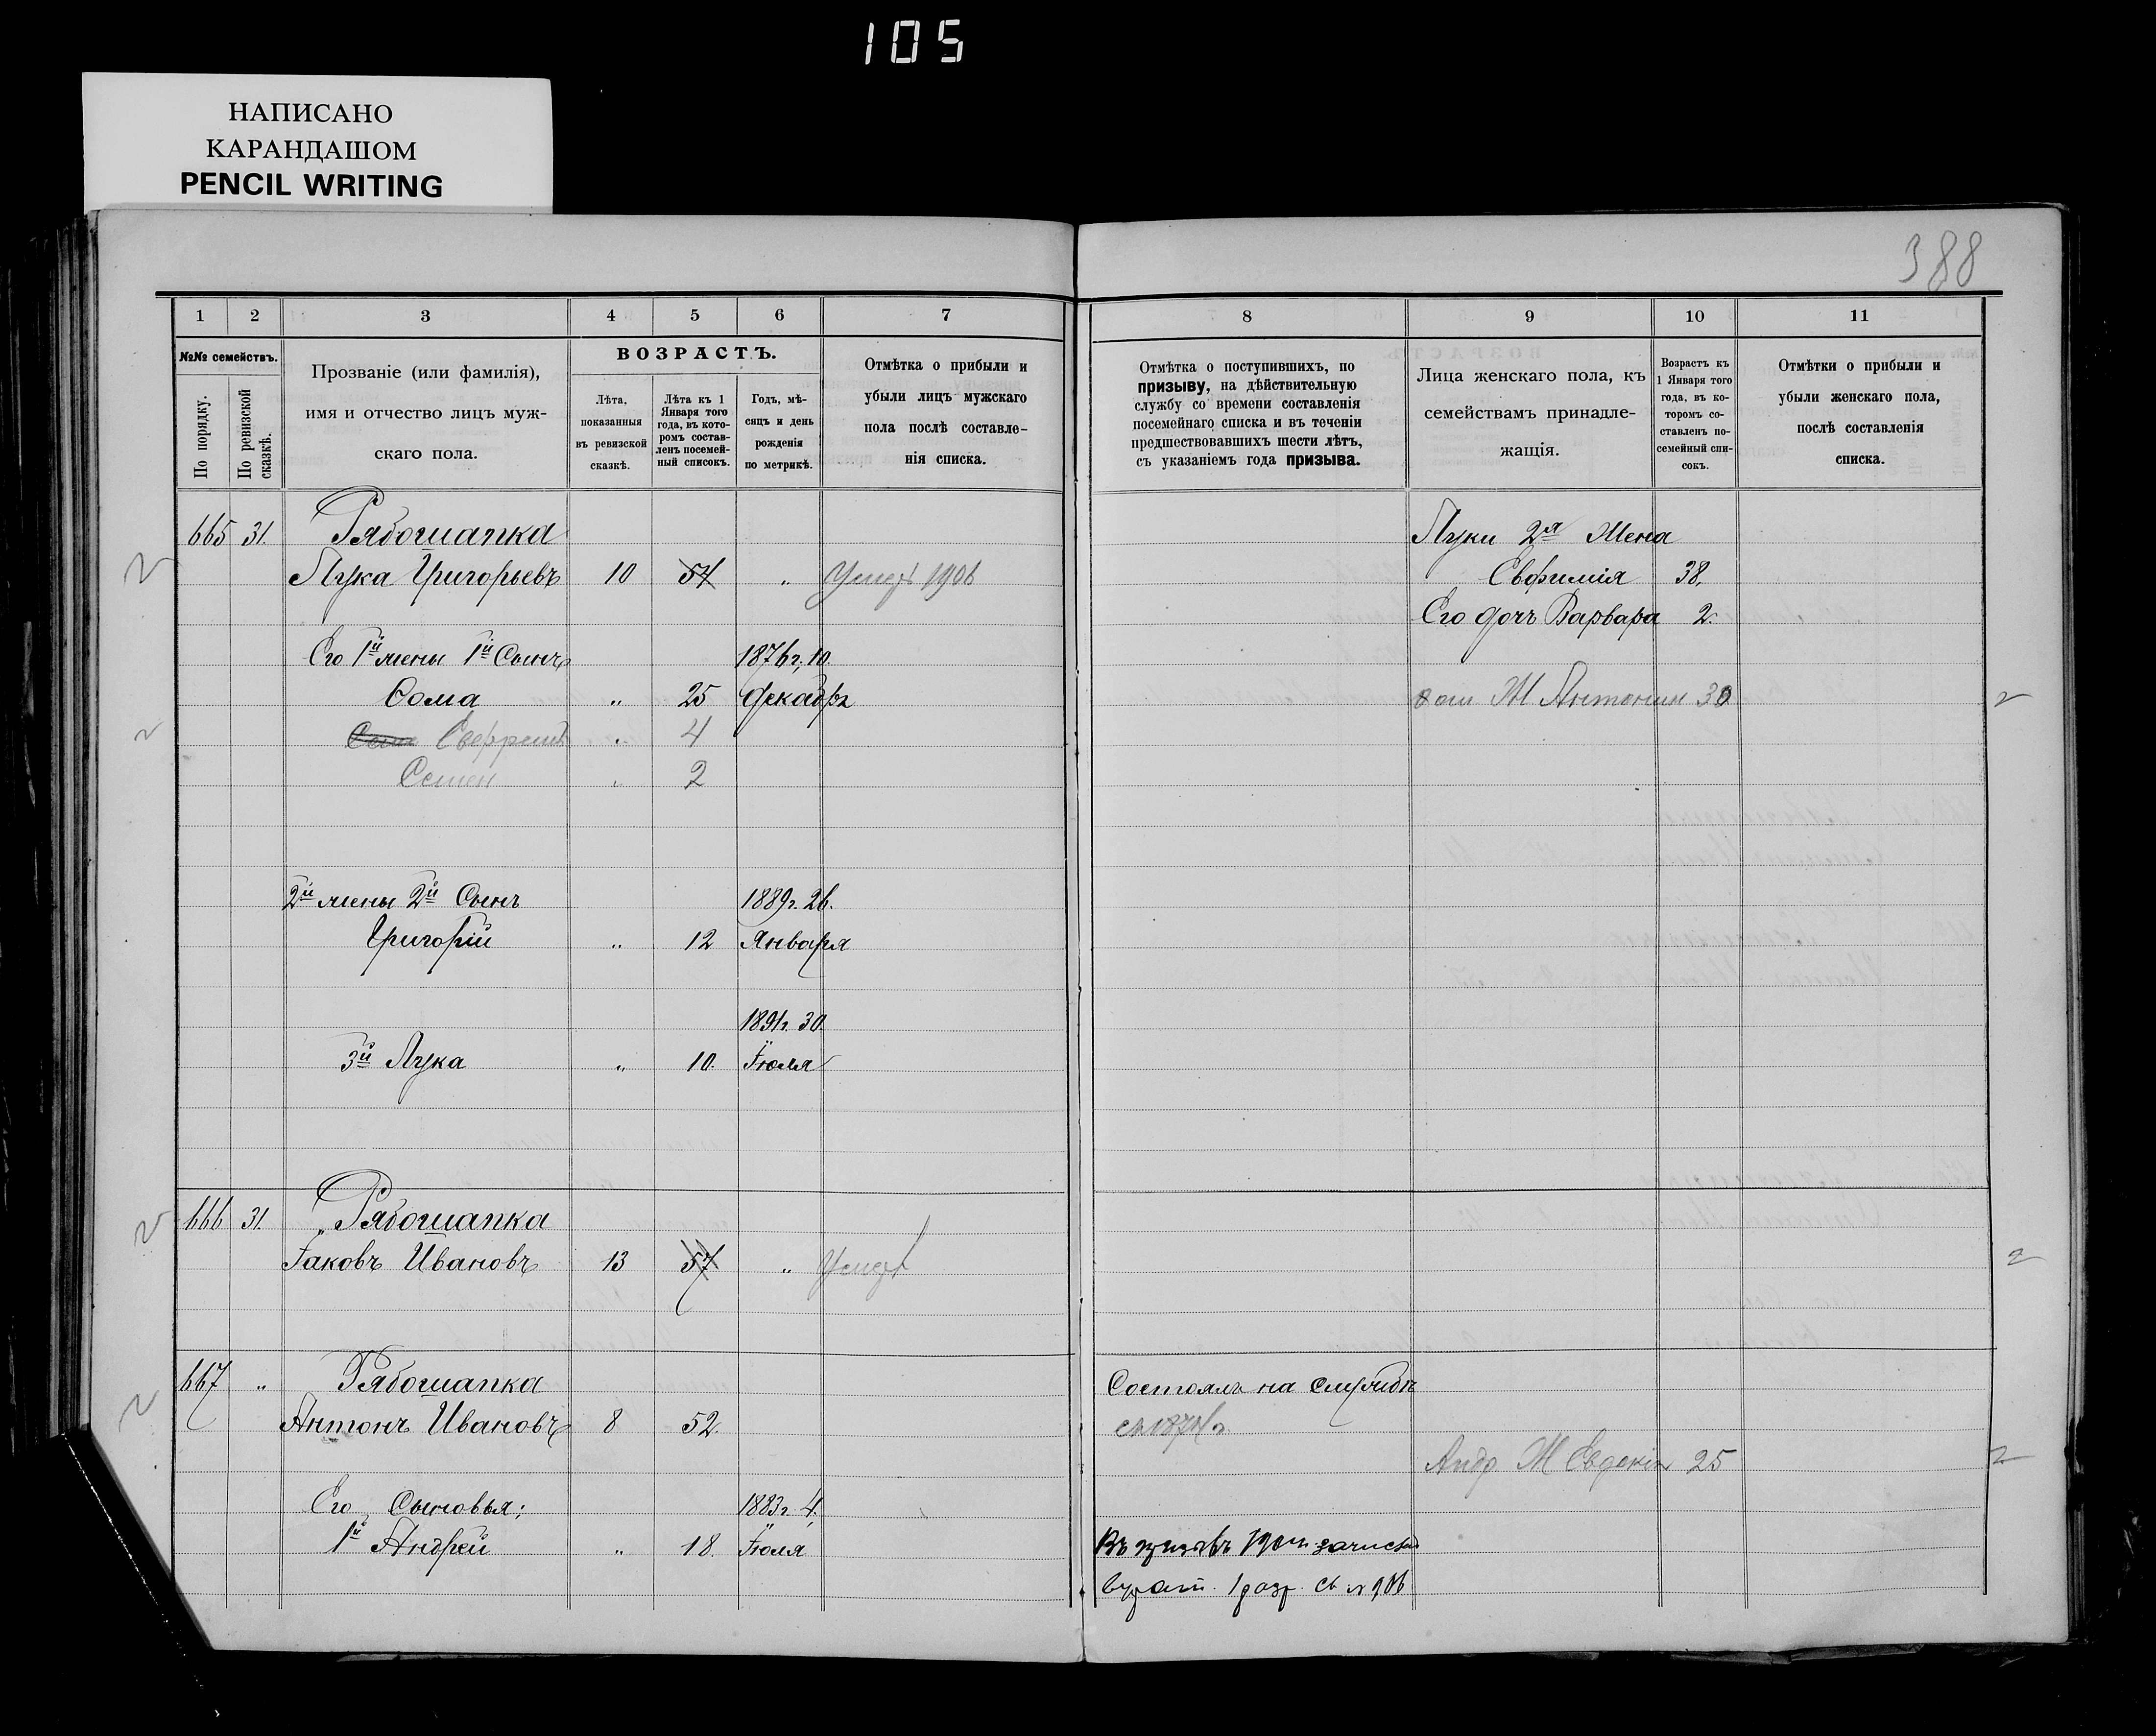 105
НАПИСАНО
КАРАНДАШОМ
PENCIL WRITING
388
1 2 3 4 5 6 7
№№ семействъ.
По порядку.
По ревизской сказкѣ.
Прозваніе (или фамилія),
имя и отчество лицъ муж-
скаго пола.
ВОЗРАСТЪ.
Лѣта,
показанныя
въ ревизской
сказкѣ.
Лѣта къ 1
Января того
года, въ кото-
ромъ состав-
ленъ посемей-
ный списокъ.
Годъ, мѣ-
сяцъ и день
рожденія
по метрикѣ.
Отмѣтка о прибыли и
убыли лицъ мужскаго
пола послѣ составле-
нія списка.
8 9 10 11
Отмѣтка о поступившихъ, по
призыву, на дѣйствительную
службу со времени составленія
посемейнаго списка и въ теченіи
предшествовавшихъ шести лѣтъ,
съ указаніемъ года призыва.
Лица женскаго пола, къ
семействамъ принадле-
жащія.
Возрастъ къ
1 Января того
года, въ ко-
торомъ со-
ставленъ по-
семейный спи-
сокъ.
Отмѣтки о прибыли и
убыли женскаго пола,
послѣ составленія
списка.
665 31. Рябошапка
Лука Григорьевъ 10 54 " Умеръ 1906
Его 1й жены 1й Сынъ 1876г. 10.
Ѳома " 25 Декабря
4
Семен " 2
2й жены 2й Сынъ 1889г. 26.
Григорій " 12 Января
1891г. 30.
3й Лука " 10. Іюля
Луки 2я Жена
Евфимія 38.
Его дочь Варвара 2.
Ѳом Ж Антонин 30
666 31. Рябошапка
Іаковъ Ивановъ 13 57 " Умеръ
667 " Рябошапка
Антонъ Ивановъ 8 52.
Состоялъ на службѣ
Андр Ж Евдокія 25
Его Сыновья: 1883г. 4.
1й Андрей " 18. Іюля